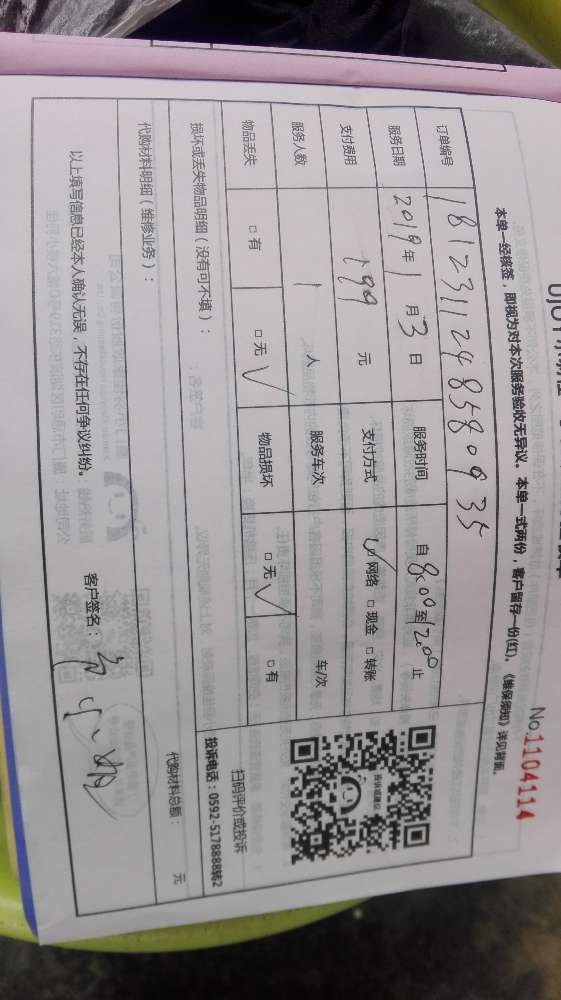 No.1104114
本单一经核签，即视为对本次服务验收无异议。本单一式两份，客户留存一份(红)。《维保须知》详见背面。
订单编号 1812311248580935
服务日期 2019年1月3日 服务时间 自8:00至12:00止
支付费用 199元 支付方式 ☑网络 □现金 □转账
服务人数 1人 服务车次 车/次
物品丢失 □有 □无✓ 物品损坏 □无✓ □有
投诉或建议
扫码评价或投诉
投诉电话：0592-5178888转2
损坏或丢失物品明细（没有可不填）：
代购材料明细（维修业务）： 代购材料总额： 元
以上填写信息已经本人确认无误，不存在任何争议纠纷。 客户签名：